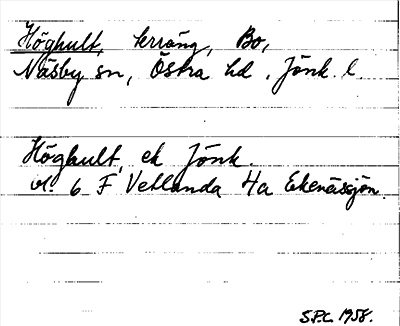 Höghult, terräng, Bo,
Näsby sn, Östra hd. Jönk. l.
Höghult, ek Jönk.
bl. 6 F Vetlanda 4a Ekenässjön.
S.P.L. 1958.